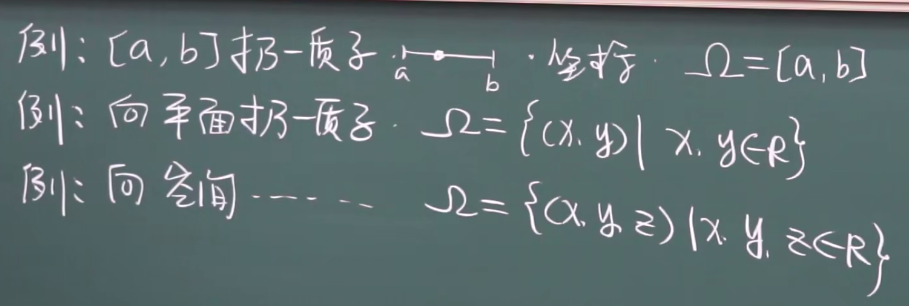 例: [a,b]扔一质子. a b ·坐标. Ω=[a,b]
例: 向平面扔一质子. Ω={(x.y)| x. y∈R}
例: 向空间…… Ω={(x.y,z)|x.y,z∈R}